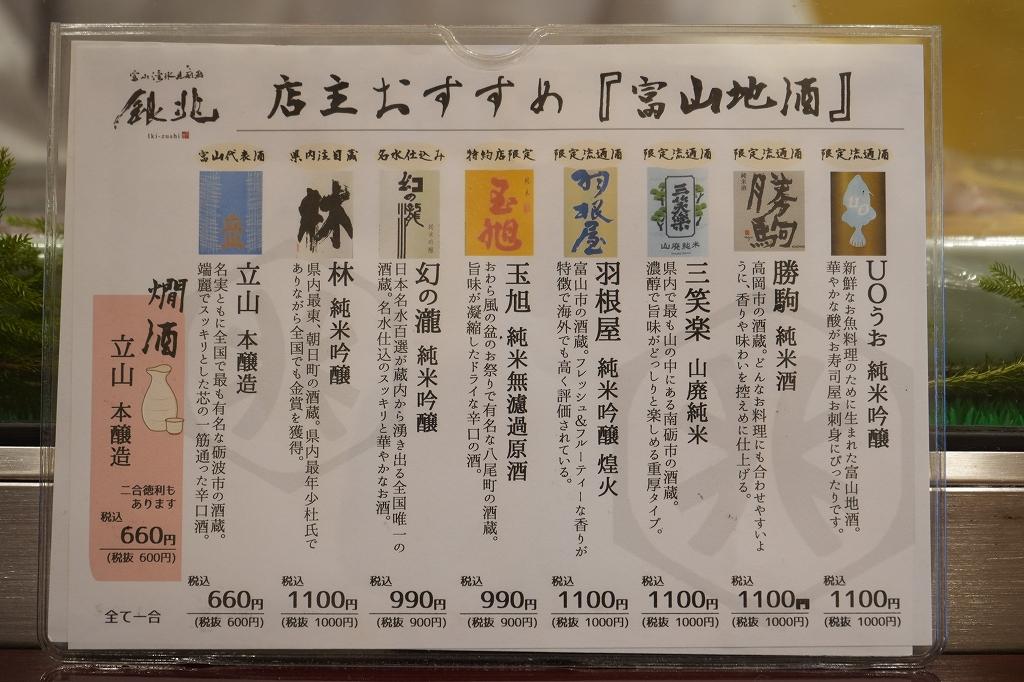 富山湾氷見前面
銀兆
Iki-zushi
店主おすすめ『富山地酒』
限定流通酒
UO
UOうお 純米吟醸
新鮮なお魚料理のために生まれた富山地酒。
華やかな酸がお寿司屋お刺身にぴったりです。
税込
1100円
(税抜 1000円)
限定流通酒
純米酒
勝駒
勝駒 純米酒
高岡市の酒蔵。どんなお料理にも合わせやすいよ
うに、香りや味わいを控えめに仕上げる。
税込
1100円
(税抜 1000円)
限定流通酒
三笑楽
山廃純米
三笑楽 山廃純米
県内で最も山の中にある南砺市の酒蔵。
濃醇で旨味がどっしりと楽しめる重厚タイプ。
税込
1100円
(税抜 1000円)
限定流通酒
羽根屋
羽根屋 純米吟醸 煌火
富山市の酒蔵。フレッシュ&フルーティーな香りが
特徴で海外でも高く評価されている。
税込
1100円
(税抜 1000円)
特約店限定
純米
玉旭
玉旭 純米無濾過原酒
おわら風の盆のお祭りで有名な八尾町の酒蔵。
旨味が凝縮したドライな辛口の酒。
税込
990円
(税抜 900円)
名水仕込み
幻の瀧
純米吟醸
幻の瀧 純米吟醸
日本名水百選が蔵内から湧き出る全国唯一の
酒蔵。名水仕込のスッキリと華やかなお酒。
税込
990円
(税抜 900円)
県内注目蔵
林
林 純米吟醸
県内最東、朝日町の酒蔵。県内最年少杜氏で
ありながら全国でも金賞を獲得。
税込
1100円
(税抜 1000円)
富山代表酒
立山
立山 本醸造
名実ともに全国で最も有名な砺波市の酒蔵。
端麗でスッキリとした芯の一筋通った辛口酒。
税込
660円
(税抜 600円)
燗酒
立山 本醸造
二合徳利も
あります
税込
660円
(税抜 600円)
全て一合